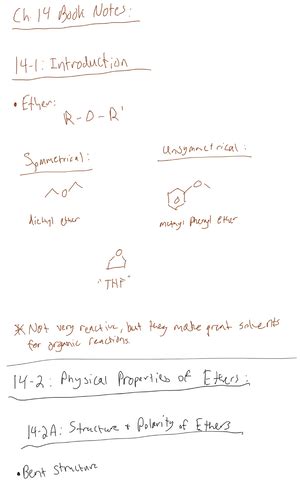 Ch 14 Book Notes:
14-1: Introduction
• Ether:
R-O-R'
Symmetrical: Unsymmetrical:
O O
diethyl ether methyl phenyl ether
O
"THF"
* Not very reactive, but they make great solvents
for organic reactions.
14-2: Physical Properties of Ethers:
14-2A: Structure + Polarity of Ethers
• Bent Structure